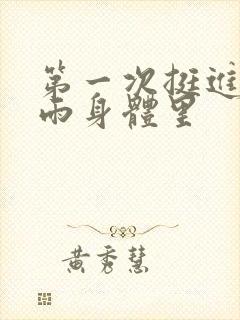 第一次挺進
雨身體里
黃秀慧